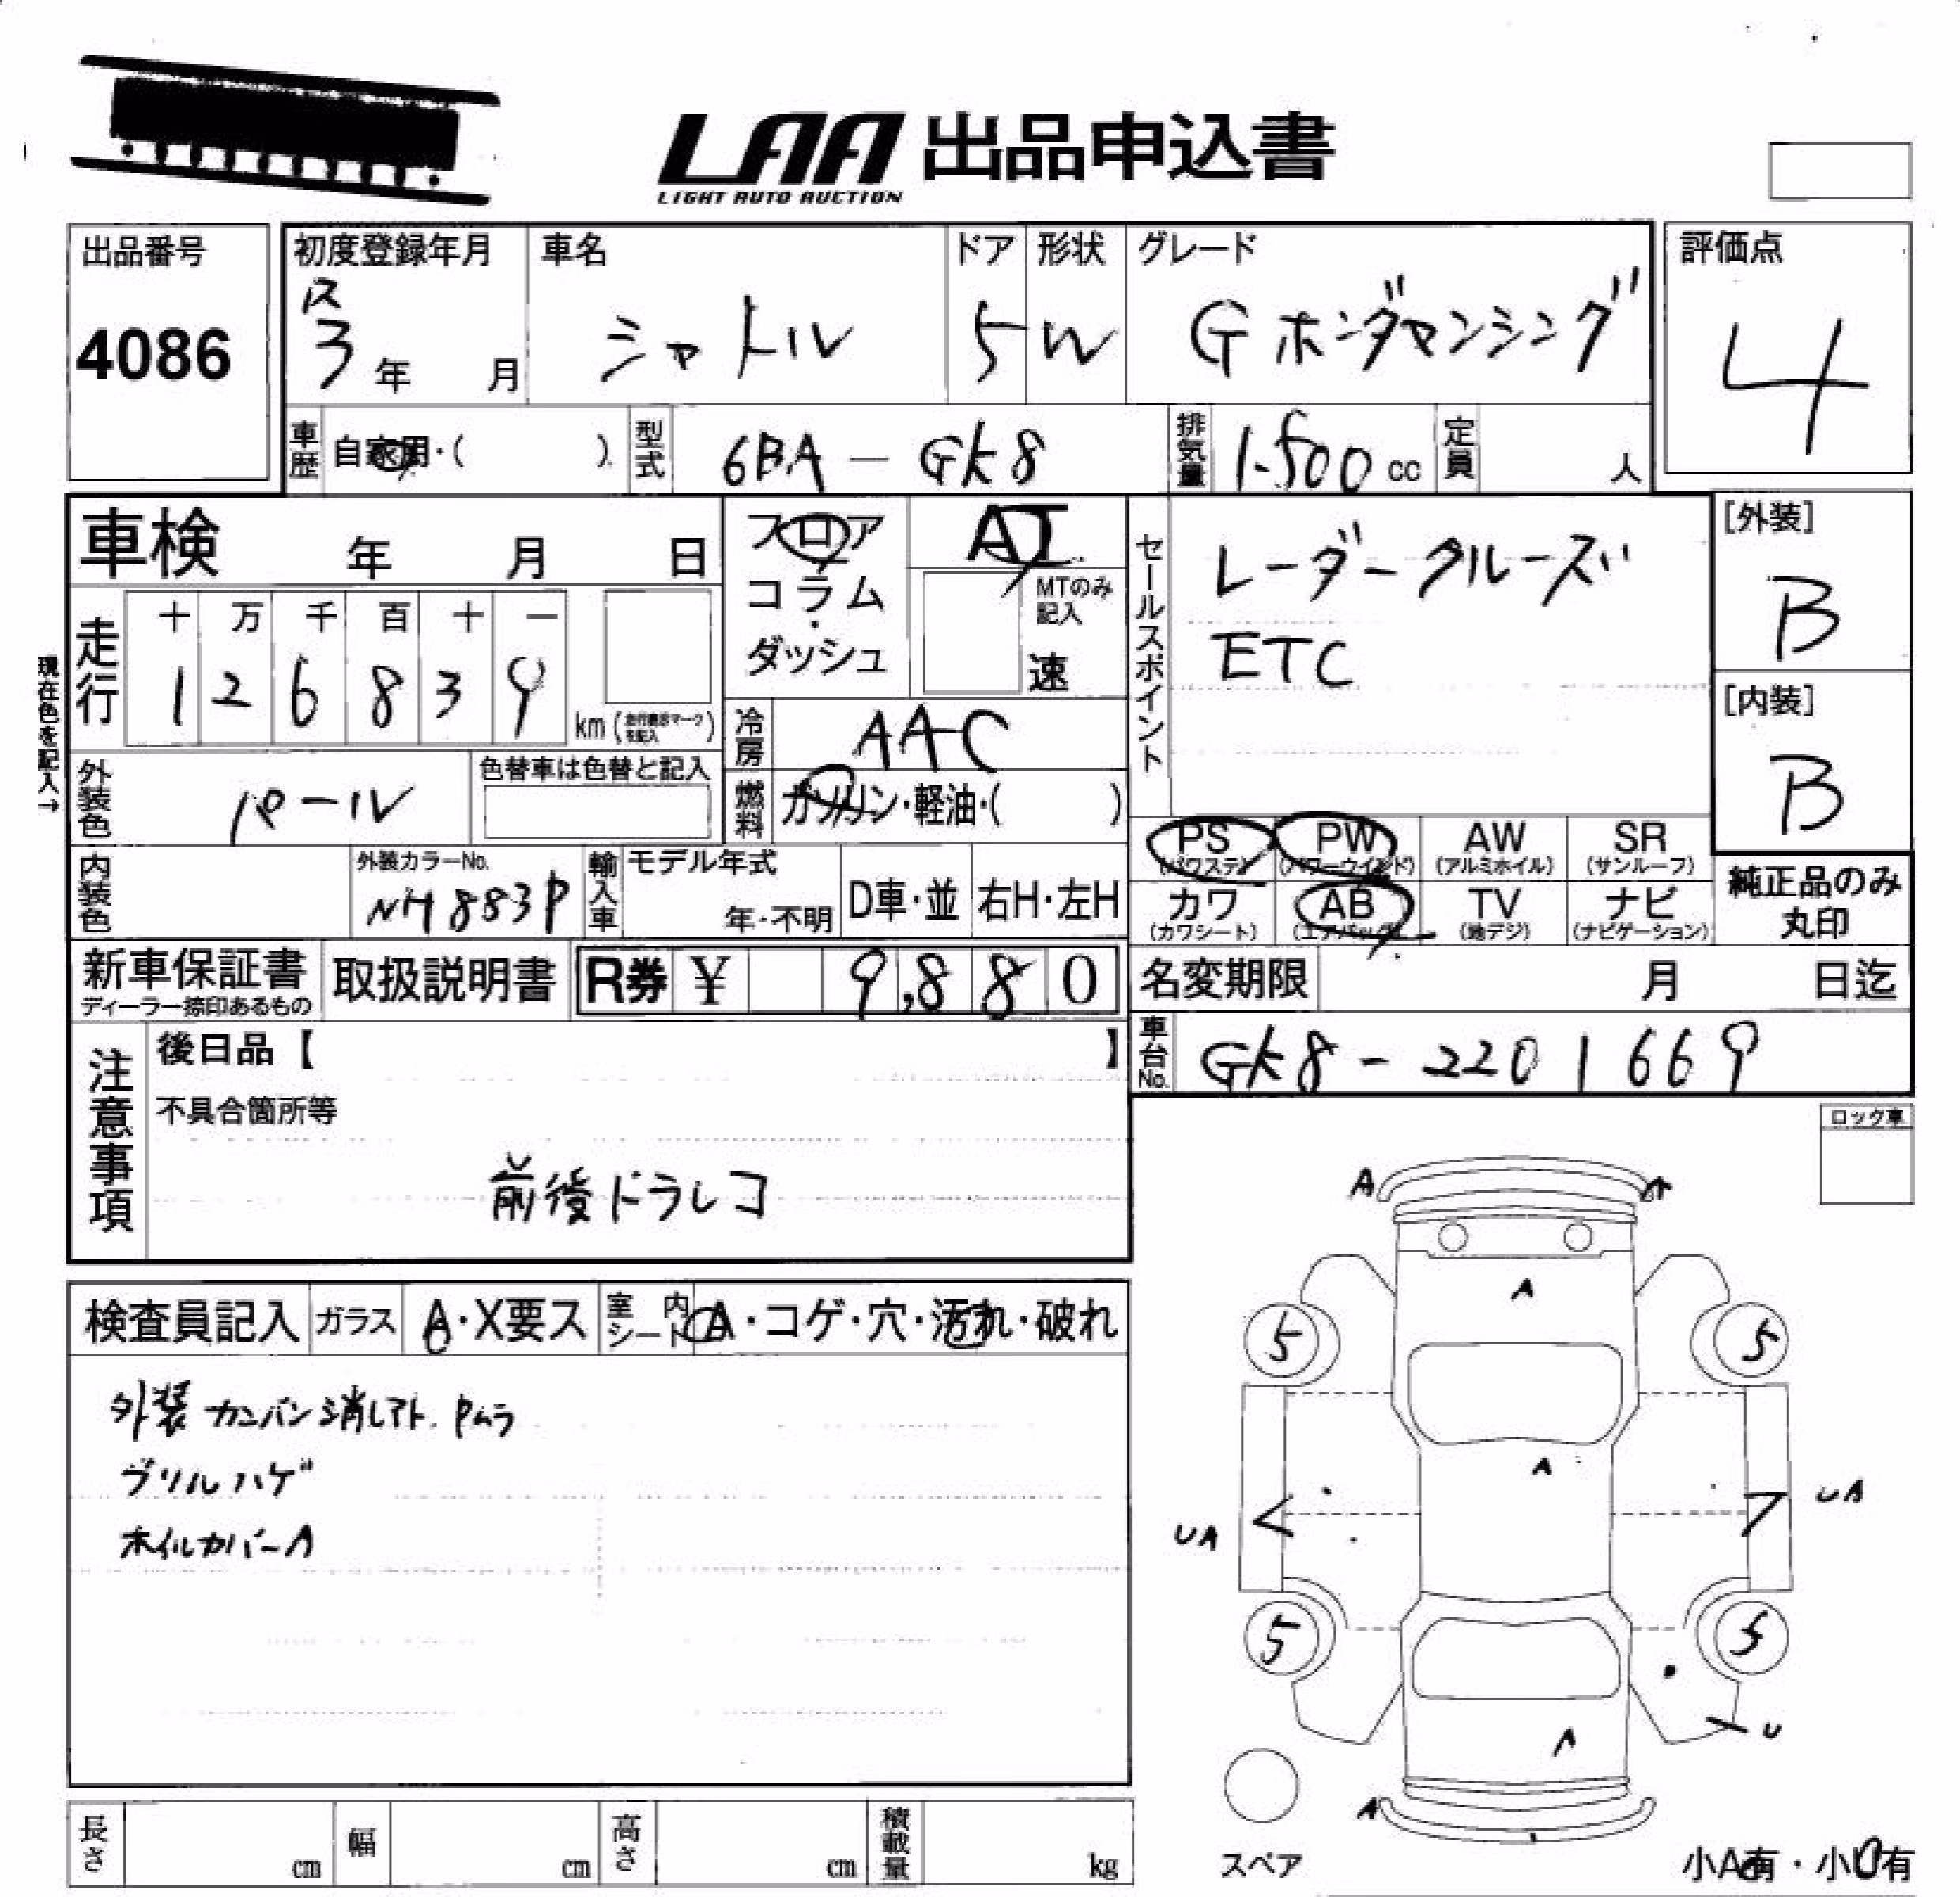 LAA 出品申込書
LIGHT AUTO AUCTION
出品番号
4086
初度登録年月
R
3 年 月
車名
シャトル
ドア
5
形状
W
グレード
G ホンダセンシング
評価点
4
車歴 自家用・( )
型式 6BA - GK8
排気量 1.500 cc
定員 人
車検 年 月 日
走行
十 万 千 百 十 一
1 2 6 8 3 9
km (走行表示マークを記入)
現在色を記入→
外装色 パール
色替車は色替と記入
内装色
外装カラーNo.
NH883P
フロア
コラム
ダッシュ
AT
MTのみ記入
速
冷房 AAC
燃料 ガソリン・軽油・( )
輸入車
モデル年式
年・不明
D車・並
右H・左H
セールスポイント
レーダークルーズ
ETC
[外装]
B
[内装]
B
PS (パワステ)
PW (パワーウインド)
AW (アルミホイル)
SR (サンルーフ)
カワ (カワシート)
AB (エアバック)
TV (地デジ)
ナビ (ナビゲーション)
純正品のみ
丸印
新車保証書
ディーラー捺印あるもの
取扱説明書
R券 ¥ 9,880
名変期限 月 日迄
車台No. GK8-2201669
注意事項
後日品【 】
不具合箇所等
前後ドラレコ
ロック車
検査員記入
ガラス A・X要ス
室内シート A・コゲ・穴・汚れ・破れ
外装 カンバン消しアト. Pムラ
グリルハゲ
ホイルカバーA
A
A
A
5
5
A
UA
UA
5
5
A
U
A
スペア
小A有・小U有
長さ cm
幅 cm
高さ cm
積載量 kg